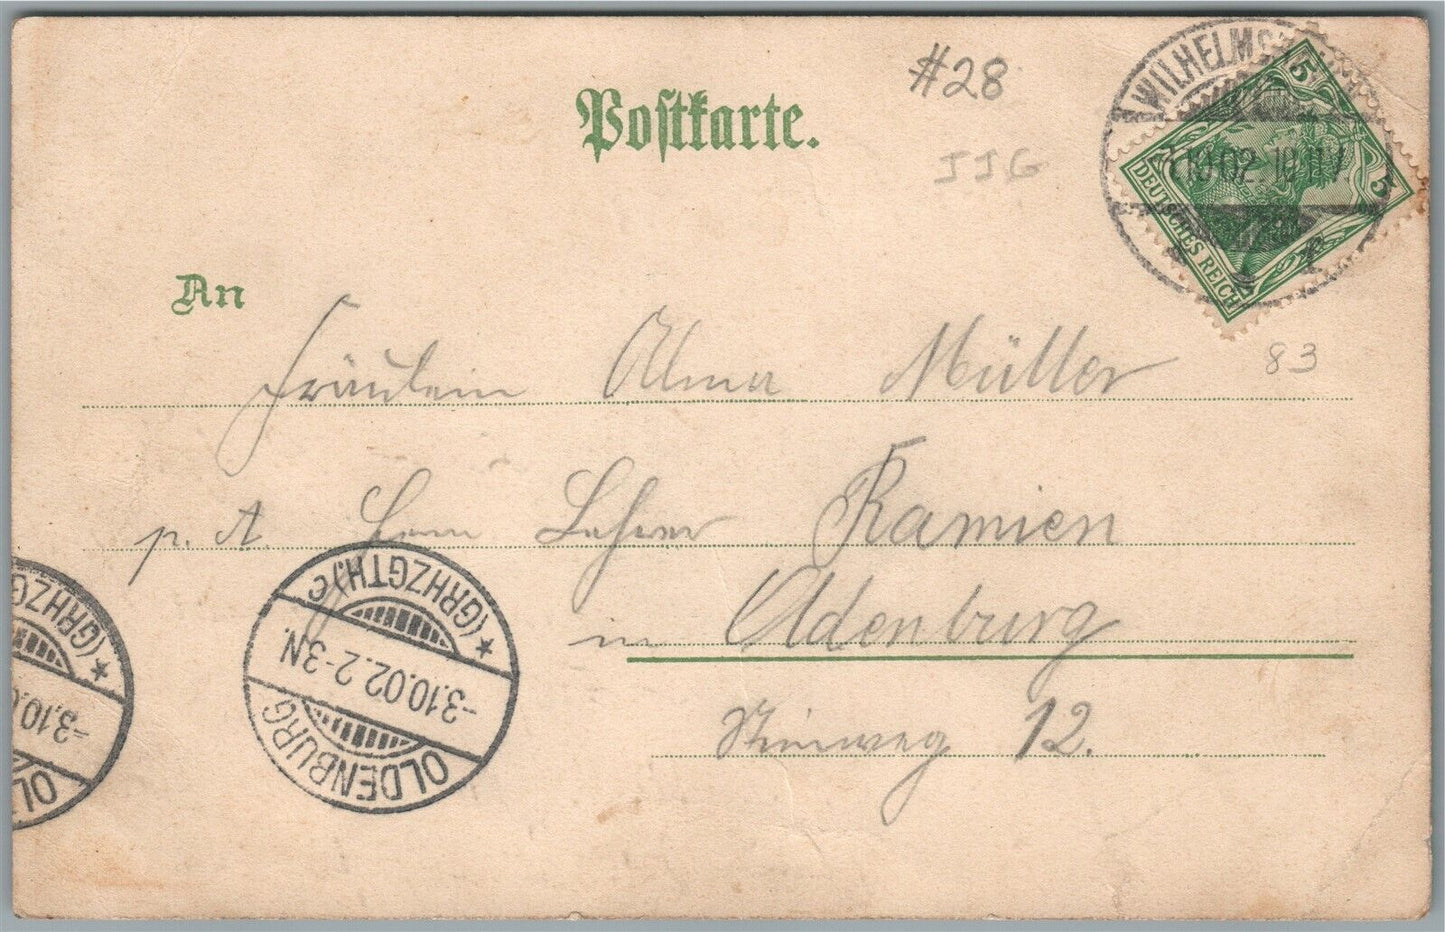 Postkarte.
#28
JJG
WILHELMS
.02. 10 11 V
5
5
DEUTSCHES REICH
An
83
Fräulein Alma Müller
p. A. Herrn Lehrer Ramien
in Oldenburg
12.
OLDENBURG
-3.10.02.2-3N.
*(GRHZGTH.)c
*(GRHZG
-3.10.0
OL